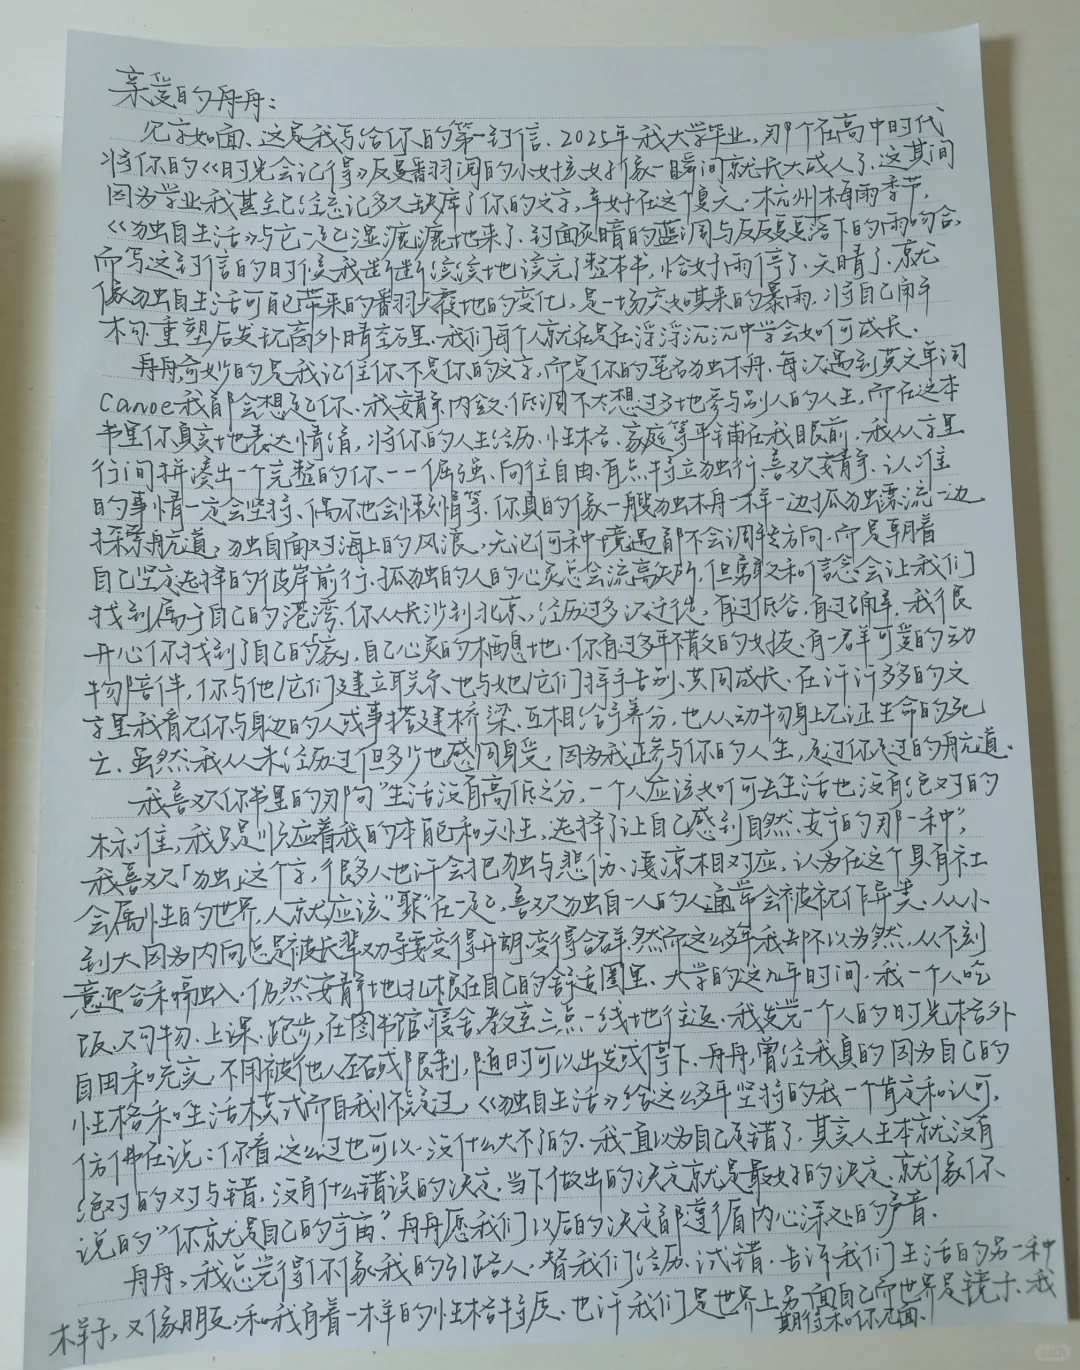 亲爱的舟舟：
见字如面、这是我写给你的第一封信、2025年我大学毕业，那个在高中时代、
将你的《时光会记得》反复翻阅的小女孩好像一瞬间就长大成人了、这其间
因为学业我甚至已经忘记多久没读了你的文字，幸好在这个夏天·杭州梅雨季节，
《独自生活》与它一起湿漉漉地来了、封面灰暗的蓝调与反反复复落下的雨吻合、
而写这封信的时候我断断续续地读完了整本书，恰好雨停了、天晴了、就
像独自生活可能带来的翻天覆地的变化，是一场突如其来的暴雨、将自己
重塑后发现窗外晴空万里、我们每个人就是在浮浮沉沉中学会如何成长、
舟舟，奇妙的是我记住你不是你的文字，而是你的笔名独木舟、每次遇到英文单词
Canoe我都会想起你、我安静、内敛、低调不太想过多地参与别人的人生，而在这本
书里你真实地表达情绪，将你的人生经历、性格、家庭等平铺在我眼前，我从字里
行间拼凑出一个完整的你——倔强、向往自由、有点特立独行、喜欢安静、认准
的事情一定会坚持、偶尔也会懒惰等、你真的像一艘独木舟一样一边孤独漂流一边
探索航道，独自面对海上的风浪，无论何种境遇都不会调转方向、而是朝着
自己坚定选择的彼岸前行、孤独的人的心灵总会流离失所，但勇敢和信念会让我们
找到属于自己的港湾、你从长沙到北京，经历过多次迁徙，有过低谷、有过确幸、我很
开心你找到了自己的「家」，自己心灵的栖息地、你有多年情义的女孩、有一群可爱的动
物陪伴，你与他/它们建立联系、也与她/它们挥手告别、共同成长、在许许多多的文
字里我看见你与身边的人或事搭建桥梁、互相给予养分，也从动物身上见证生命的死
亡、虽然我从未经历过但多少也感同身受，因为我正参与你的人生，走过你走过的航道、
我喜欢你书里的那句“生活没有高低之分，一个人应该如何去生活也没有绝对的
标准，我只是顺应着我的本能和天性，选择了让自己感到自然、安宁的那一种”，
我喜欢「独」这个字，很多人也许会把独与悲伤、凄凉相对应，认为在这个具有社
会属性的世界，人就应该“聚”在一起，喜欢独自一人的人通常会被视作异类、从小
到大因为内向总是被长辈劝导要变得开朗、变得合群，然而这么多年我却不以为然、从不刻
意迎合和融入、仍然安静地扎根在自己的舒适圈里、大学的这几年时间，我一个人吃
饭、购物、上课、跑步，在图书馆、寝舍、教室三点一线地往返、我发觉一个人的时光格外
自由和充实，不用被他人左右或限制，随时可以出发或停下、舟舟，曾经我真的因为自己的
性格和生活模式而自我怀疑过，《独自生活》给这么多年坚持的我一个肯定和认可，
仿佛在说：你看这么过也可以、没什么大不了的、我一直以为自己是错了，其实人生本就没有
绝对的对与错，没有什么错误的决定，当下做出的决定就是最好的决定、就像你
说的“你就是自己的宇宙”、舟舟愿我们以后的决定都遵循内心深处的声音、
舟舟，我总觉得你像我的引路人、替我们经历、试错、告诉我们生活的另一种
样子，又像朋友，和我有着一样的性格特质、也许我们是世界上另一面自己而世界是镜子、我
期待和你见面、